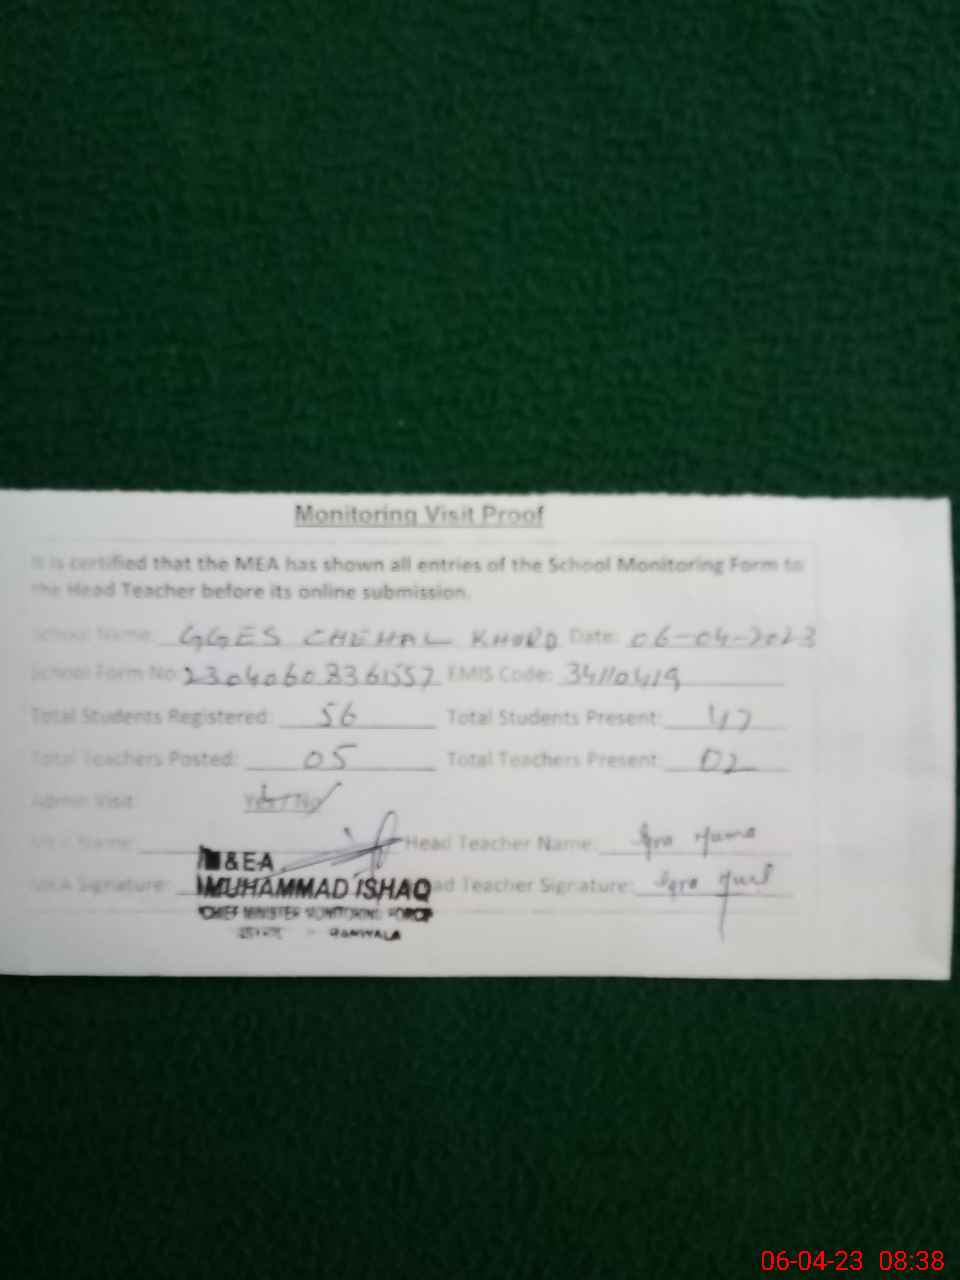 Monitoring Visit Proof
It is certified that the MEA has shown all entries of the School Monitoring Form to
the Head Teacher before its online submission.
School Name: GGES CHEHAL KHURD Date: 06-04-2023
School Form No: 23040608361557 EMIS Code: 34110419
Total Students Registered: 56 Total Students Present: 47
Total Teachers Posted: 05 Total Teachers Present: 02
Admin Visit: Yes / No
MEA Name: Head Teacher Name: Iqra
M&EA
MEA Signature: MUHAMMAD ISHAQ Head Teacher Signature: Iqra
CHIEF MINISTER MONITORING FORCE
06-04-23 08:38